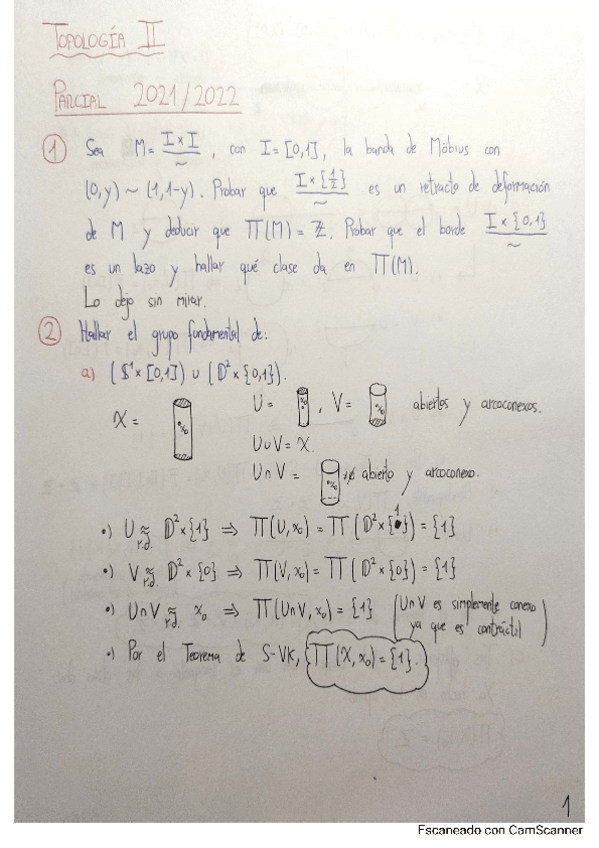 TOPOLOGÍA II
PARCIAL 2021/2022
① Sea M = I×I/~, con I = [0,1], la banda de Möbius con
(0,y) ~ (1,1-y). Probar que I×{1/2}/~ es un retracto de deformación
de M y deducir que Π(M) = ℤ. Probar que el borde I×{0,1}/~
es un lazo y hallar qué clase da en Π(M).
Lo dejo sin mirar.
② Hallar el grupo fundamental de:
a) (𝕊¹×[0,1]) ∪ (𝔻²×{0,1}).
X = x₀ U = x₀, V = x₀ abiertos y arcoconexos.
U∪V = X.
U∩V = x₀ ≠∅ abierto y arcoconexo.
•) U ≈ r.d. 𝔻²×{1} ⇒ Π(U,x₀) = Π(𝔻²×{1}) = {1}
•) V ≈ r.d. 𝔻²×{0} ⇒ Π(V,x₀) = Π(𝔻²×{0}) = {1}
•) U∩V ≈ r.d. x₀ ⇒ Π(U∩V,x₀) = {1} (U∩V es simplemente conexo
ya que es contráctil)
•) Por el Teorema de S-VK, Π(X,x₀) = {1}.
1
Escaneado con CamScanner